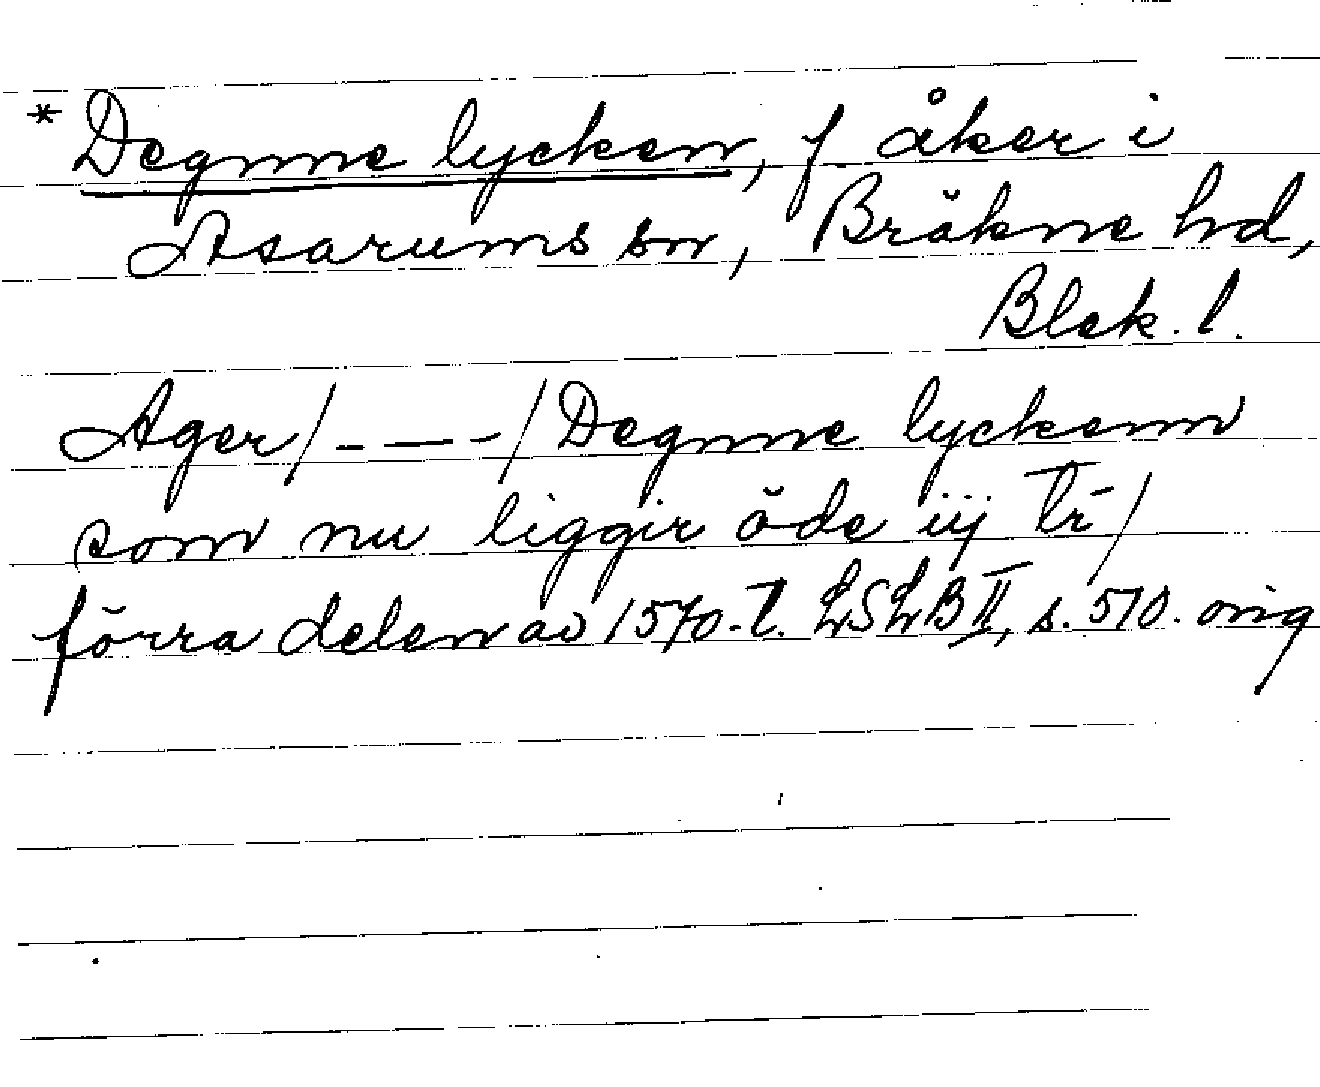 * Degnne lycken, f. åker i
Asarums sn, Bräkne hd,
Blek. l.
Ager/– — –/Degnne lyckenn
som nu liggir öde iij Tr̄/
förra delen av 1570-t. LSLB II, s. 510. orig